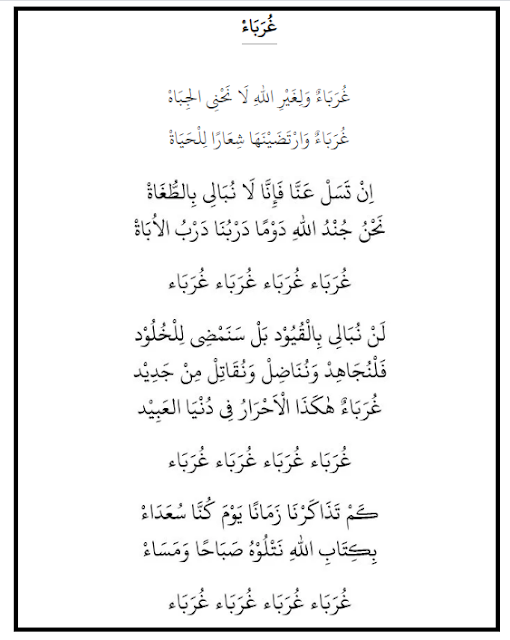 غُرَبَاءْ
غُرَبَاءٌ وَلِغَيْرِ اللهِ لَا نَحْنِى الجِبَاهْ
غُرَبَاءٌ وَارْتَضَيْنَهَا شِعَارًا لِلْحَيَاةْ
اِنْ تَسَلْ عَنَّا فَإِنَّا لَا نُبَالِى بِالطُّغَاةْ
نَحْنُ جُنْدُ اللهِ دَوْمًا دَرْبُنَا دَرْبُ الاُبَاةْ
غُرَبَاء غُرَبَاء غُرَبَاء غُرَبَاء
لَنْ نُبَالِى بِالْقُيُوْد بَلْ سَنَمْضِى لِلْخُلُوْد
فَلْنُجَاهِدْ وَنُنَاضِلْ وَنُقَاتِلْ مِنْ جَدِيْد
غُرَبَاءٌ هٰكَذَا الْاَحْرَارُ فِى دُنْيَا العَبِيْد
غُرَبَاء غُرَبَاء غُرَبَاء غُرَبَاء
كَمْ تَذَاكَرْنَا زَمَانًا يَوْمَ كُنَّا سُعَدَاءْ
بِكِتَابِ اللهِ نَتْلُوْهُ صَبَاحًا وَمَسَاءْ
غُرَبَاء غُرَبَاء غُرَبَاء غُرَبَاء